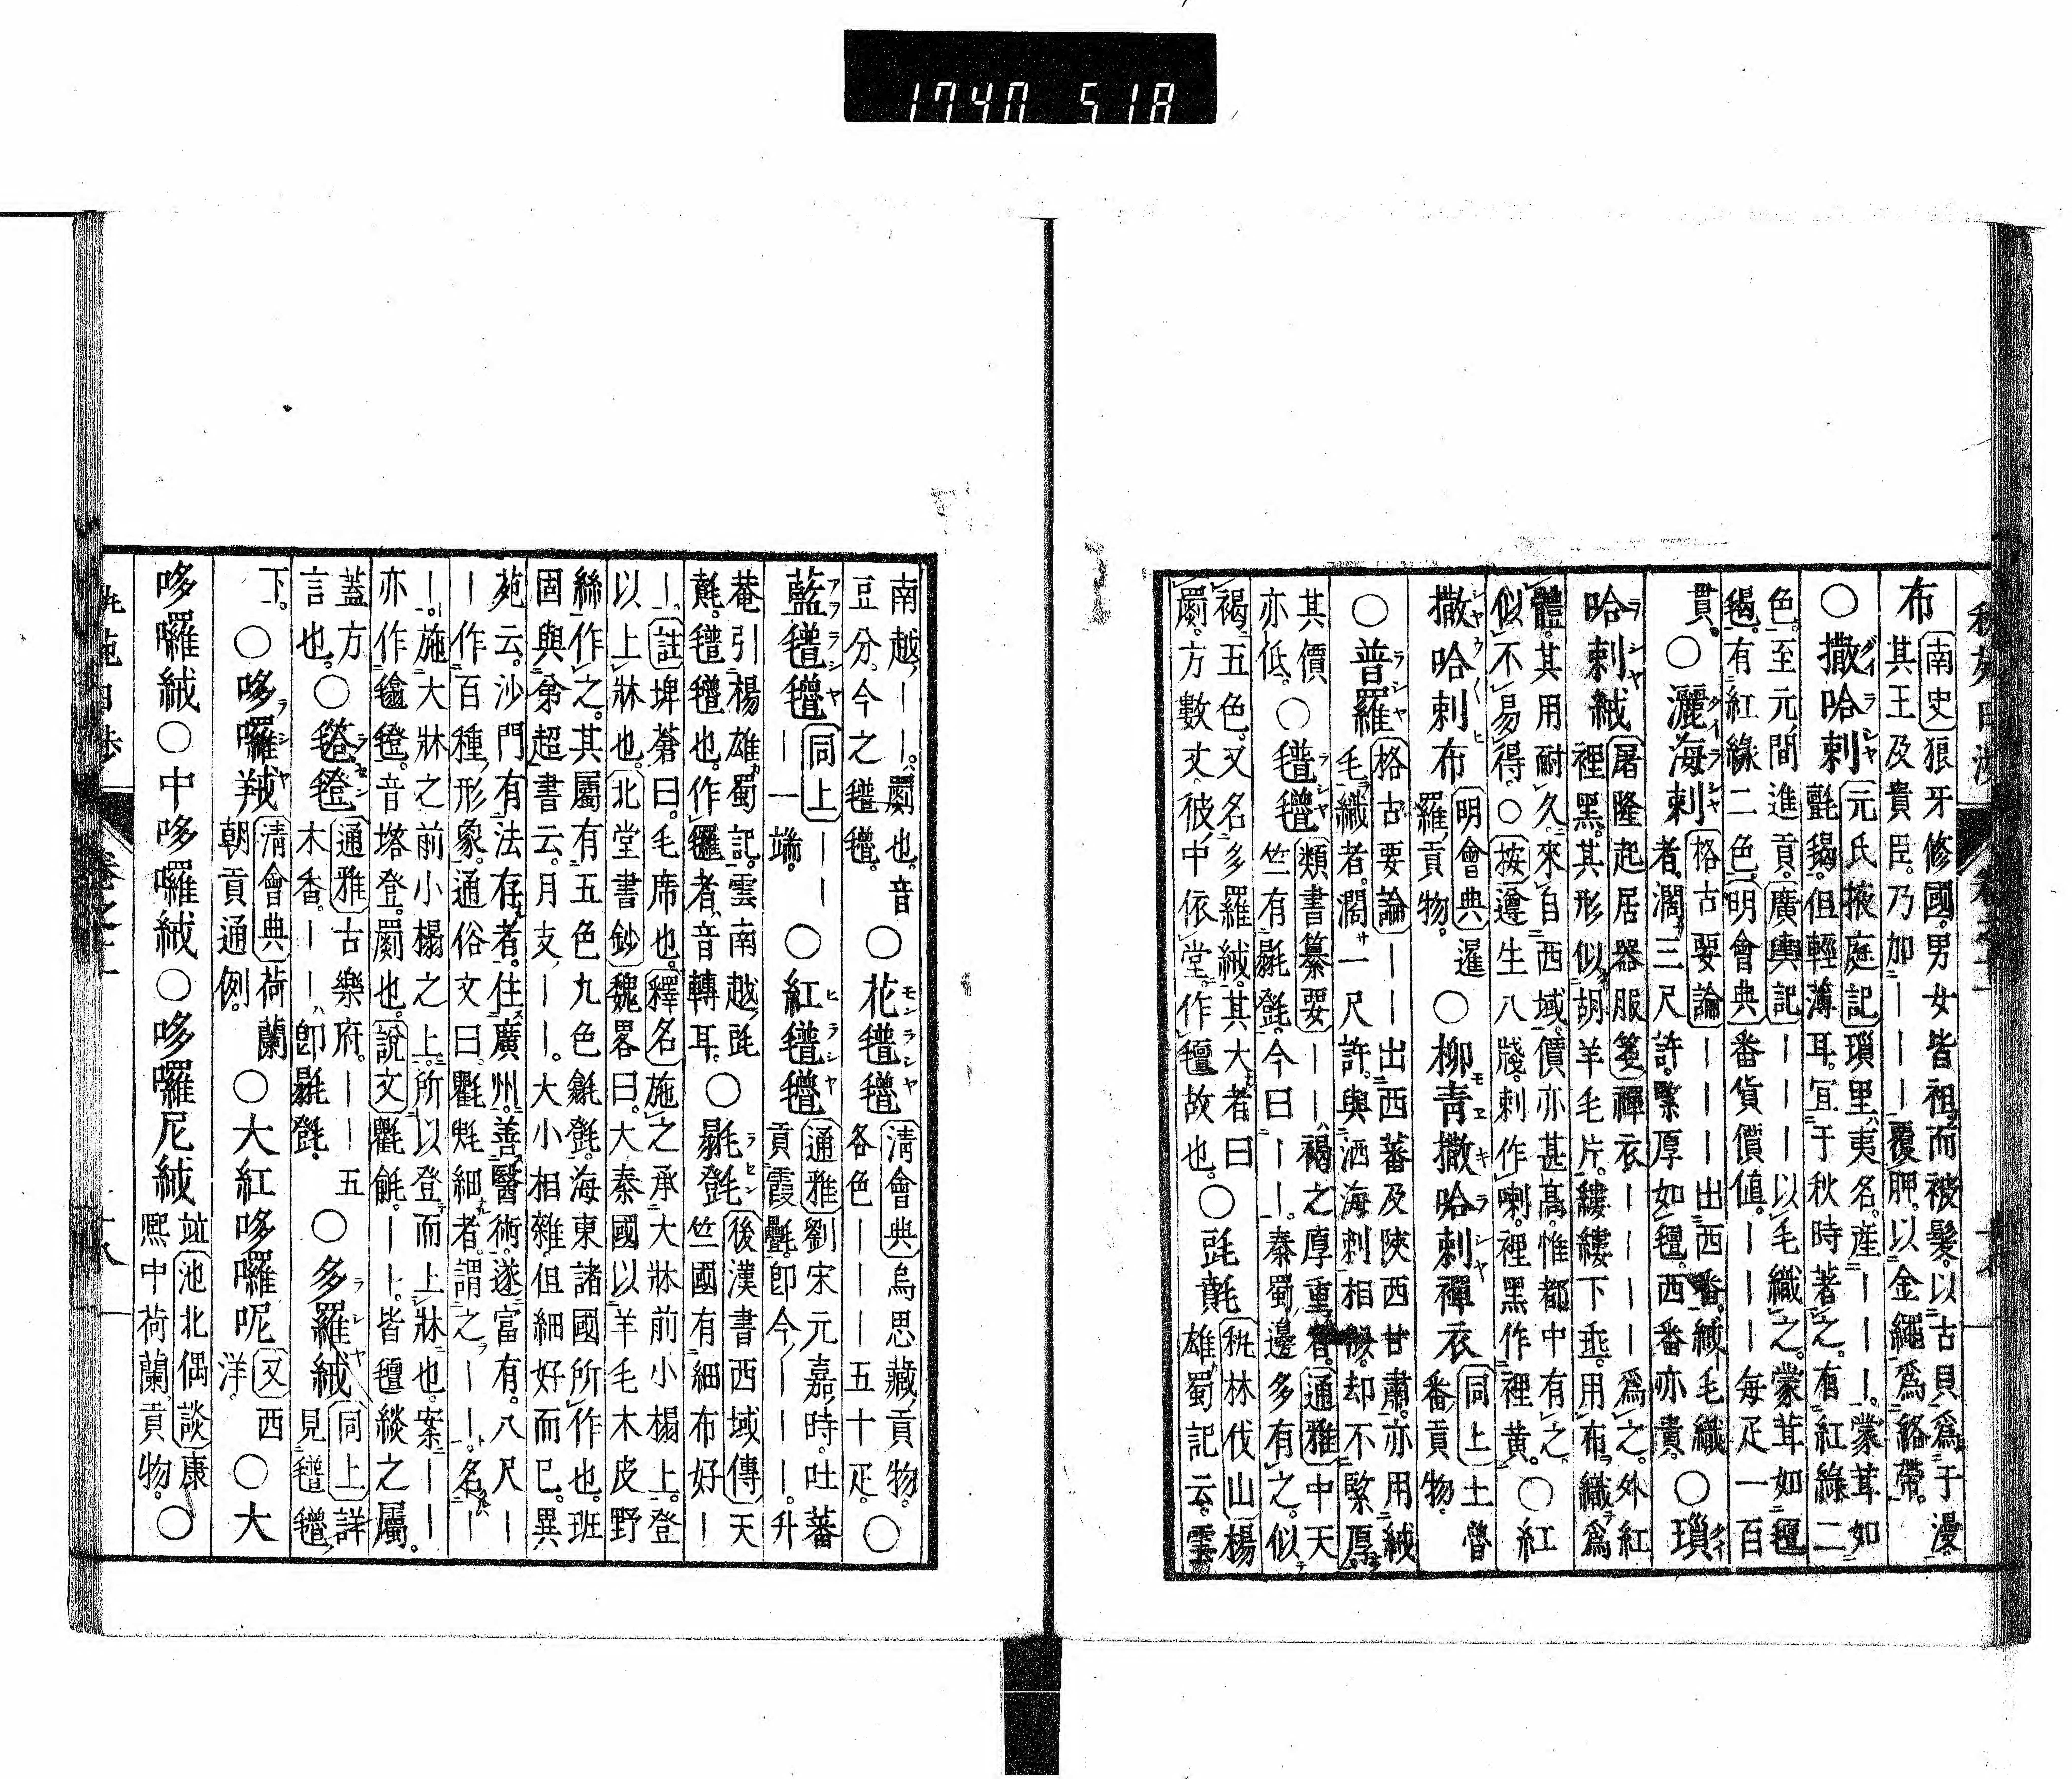 布 南史狼牙修國。男女皆袒而被髮。以古貝爲干漫。
其王及貴臣。乃加———覆胛。以金繩爲絡帶。
〇撒哈剌 元氏掖庭記瑣里、夷名。産———。蒙茸如
氈毼。但輕薄耳。宜于秋時著之。有紅綠二
色。至元間進貢。廣輿記———以毛織之。蒙茸如氈
毼。有紅綠二色。明會典番貨價値。———每疋一百
貫。〇灑海剌 格古要論———出西番。絨毛織
者。濶三尺許。緊厚如氈。西番亦貴。〇瑣
哈剌絨 屠隆起居器服箋禪衣————爲之。外紅
裡黑。其形似胡羊毛片。縷縷下垂。用布織爲
體。其用耐久。來自西域。價亦甚高。惟都中有之。
似不易得。〇按遵生八牋。剌作喇。裡黑作裡黃。〇紅
撒哈剌布 明會典暹
羅、貢物。〇柳青撒哈剌禪衣 同上土魯
番、貢物。
〇普羅 格古要論——出西蕃及陝西甘肅。亦用絨
毛織者。濶一尺許。與洒海剌相似。却不緊厚。
其價
亦低。〇氆氌 類書纂要——、褐之厚重者。通雅中天
竺有毾㲪。今曰——。秦蜀邊多有之。似
褐。五色。又名多羅絨。其大者曰
罽。方數丈。彼中依堂。作氈故也。〇 秇林伐山楊
雄蜀記云。雲
南越、——。罽也。音
豆分。今之氆氌。〇花氆氌 淸會典烏思藏、貢物。
各色———五十疋。〇
藍氆氌 同上——
—一端。〇紅氆氌 通雅劉宋元嘉時。吐蕃
貢霞氎。卽今———。升
菴引楊雄蜀記。雲南越
氆氌也。作者、音轉耳。〇毾㲪 後漢書西域傳天
竺國有細布好—
—。註埤蒼曰。毛席也。釋名施之承大牀前小榻上。登
以上牀也。北堂書鈔魏畧曰。大秦國以羊毛木皮野
絲作之。其屬有五色九色毹㲪。海東諸國所作也。班
固與弟超書云。月支——。大小相雜。但細好而已。異
苑云。沙門有法存者。住廣州。善醫術。遂富有。八尺—
—作百種形象。通俗文曰。氍毹細者。謂之——。名—
—。施大牀之前小榻之上。所以登而上牀也。案——
亦作㲮㲪。音塔登。罽也。說文氍毹。——。皆氈緂之屬。
蓋方
言也。〇㲮㲪 通雅古樂府。——五
木香。——、卽毾㲪。〇多羅絨 同上詳
見氆氌
下。〇哆囉羢 淸會典荷蘭
朝貢通例。〇大紅哆囉呢 又西
洋。〇大
哆囉絨〇中哆囉絨〇哆囉尼絨 竝池北偶談康
熙中荷蘭貢物。〇
秇苑日渉 卷之十二